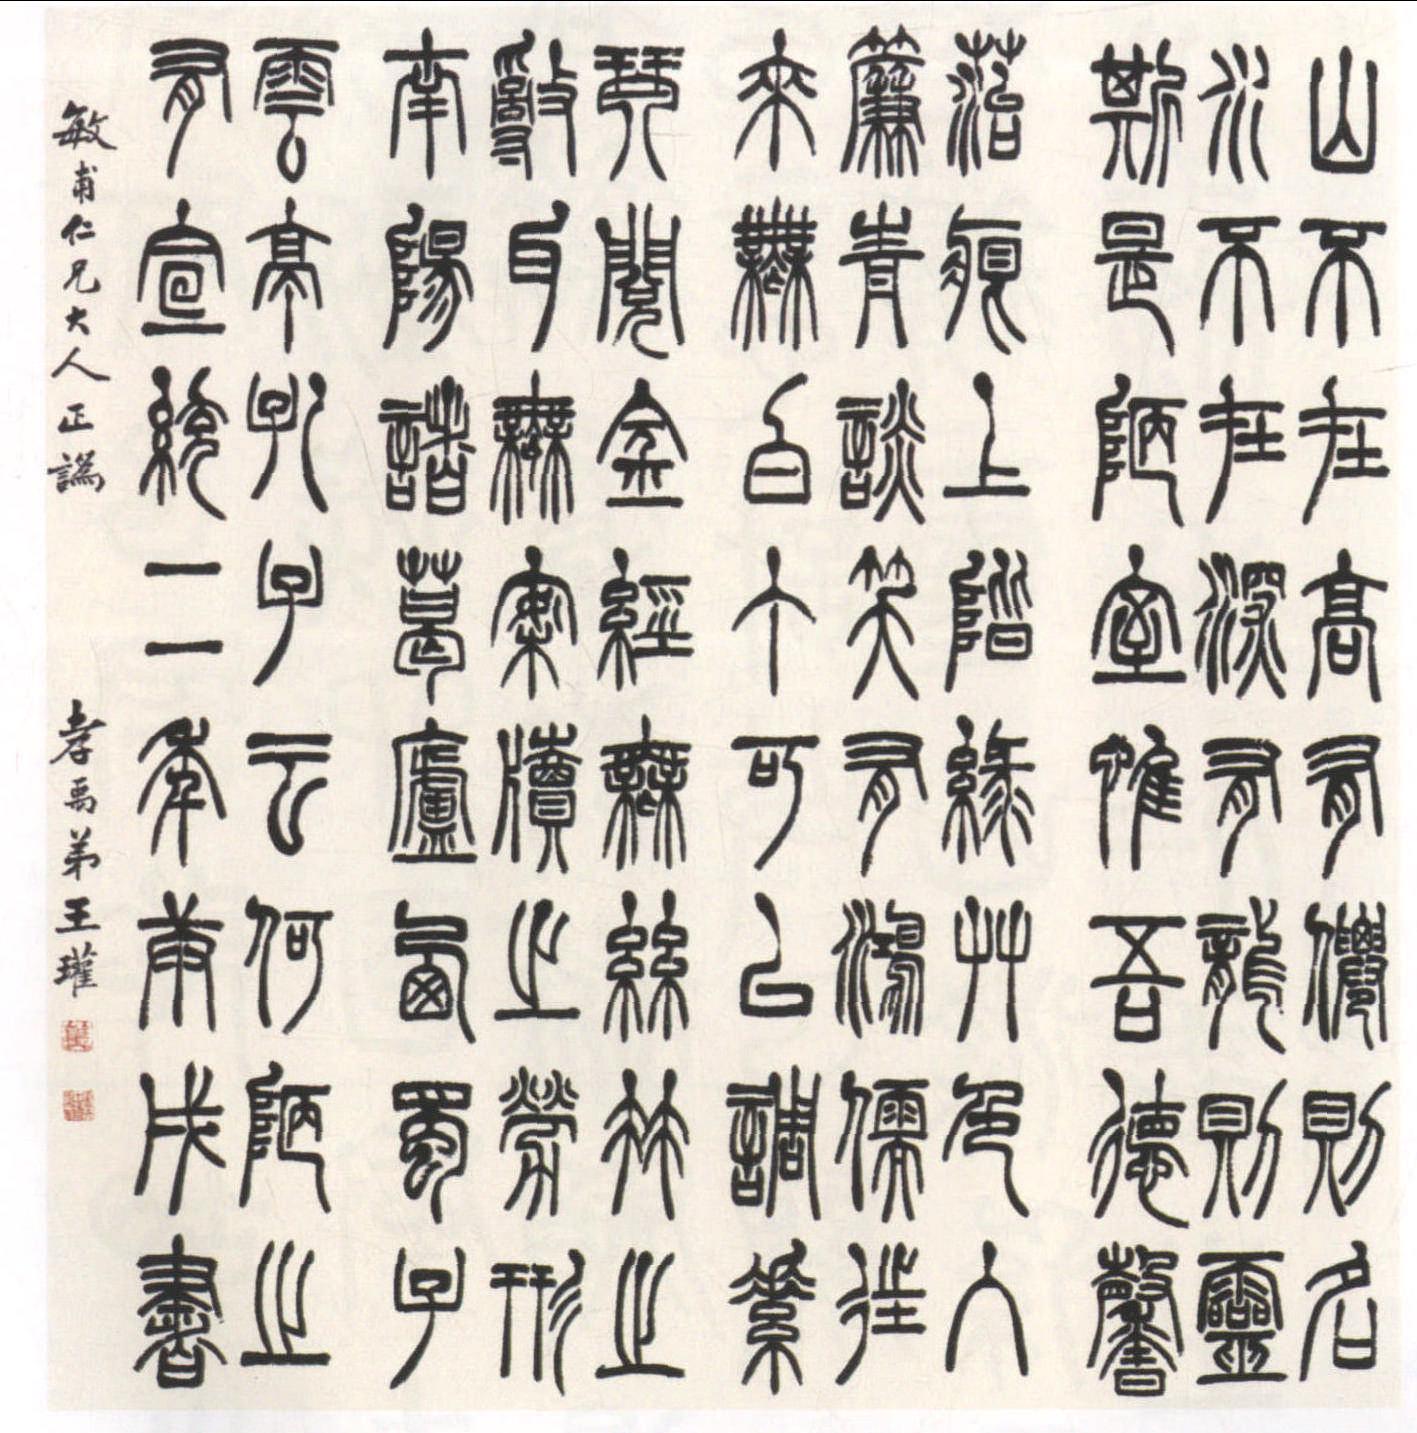 山不在高有僊則名
水不在深有龍則靈
斯是陋室惟吾德馨
菭痕上階綠艸色入
簾青談笑有鴻儒往
來無白丁可以調素
琴閱金經無絲竹之
亂耳無案牘之勞形
南陽諸葛廬西蜀子
雲亭孔子云何陋之
有宣統二年庚戌書
敏甫仁兄大人正譌
孝禹弟王瓘